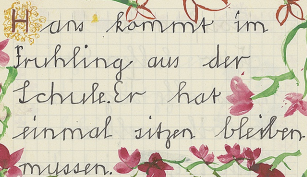 Hans kommt im
Fruhling aus der
Schule. Er hat
einmal sitzen bleiben
myssen.